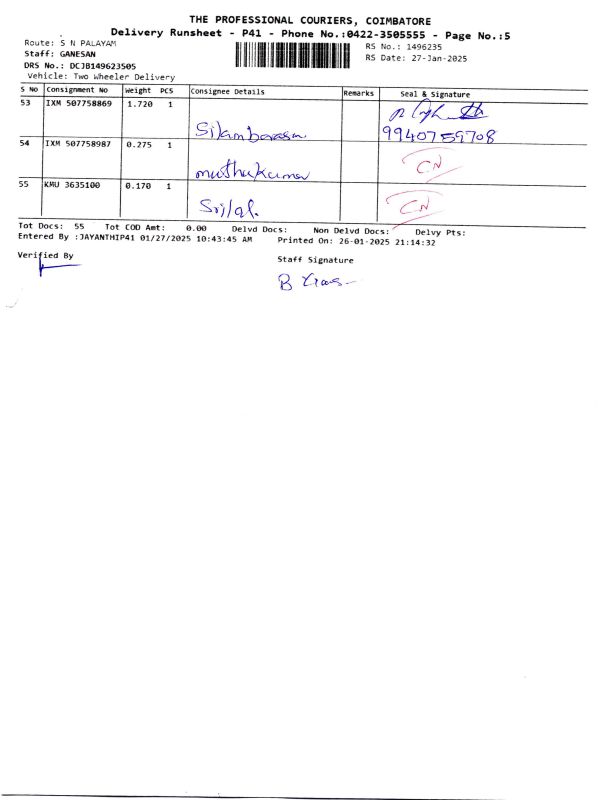 THE PROFESSIONAL COURIERS, COIMBATORE
Delivery Runsheet - P41 - Phone No.:0422-3505555 - Page No.:5
Route: S N PALAYAM
RS No.: 1496235
Staff: GANESAN
RS Date: 27-Jan-2025
DRS No.: DCJB149623505
Vehicle: Two Wheeler Delivery
S No Consignment No Weight PCS Consignee Details Remarks Seal & Signature
53 IXM 507758869 1.720 1
Silambarasan 9940759708
54 IXM 507758987 0.275 1 CN
muthukumar
55 KMU 3635100 0.170 1 CN
Tot Docs: 55 Tot COD Amt: 0.00 Delvd Docs: Non Delvd Docs: Delvy Pts:
Entered By :JAYANTHIP41 01/27/2025 10:43:45 AM Printed On: 26-01-2025 21:14:32
Verified By
Staff Signature